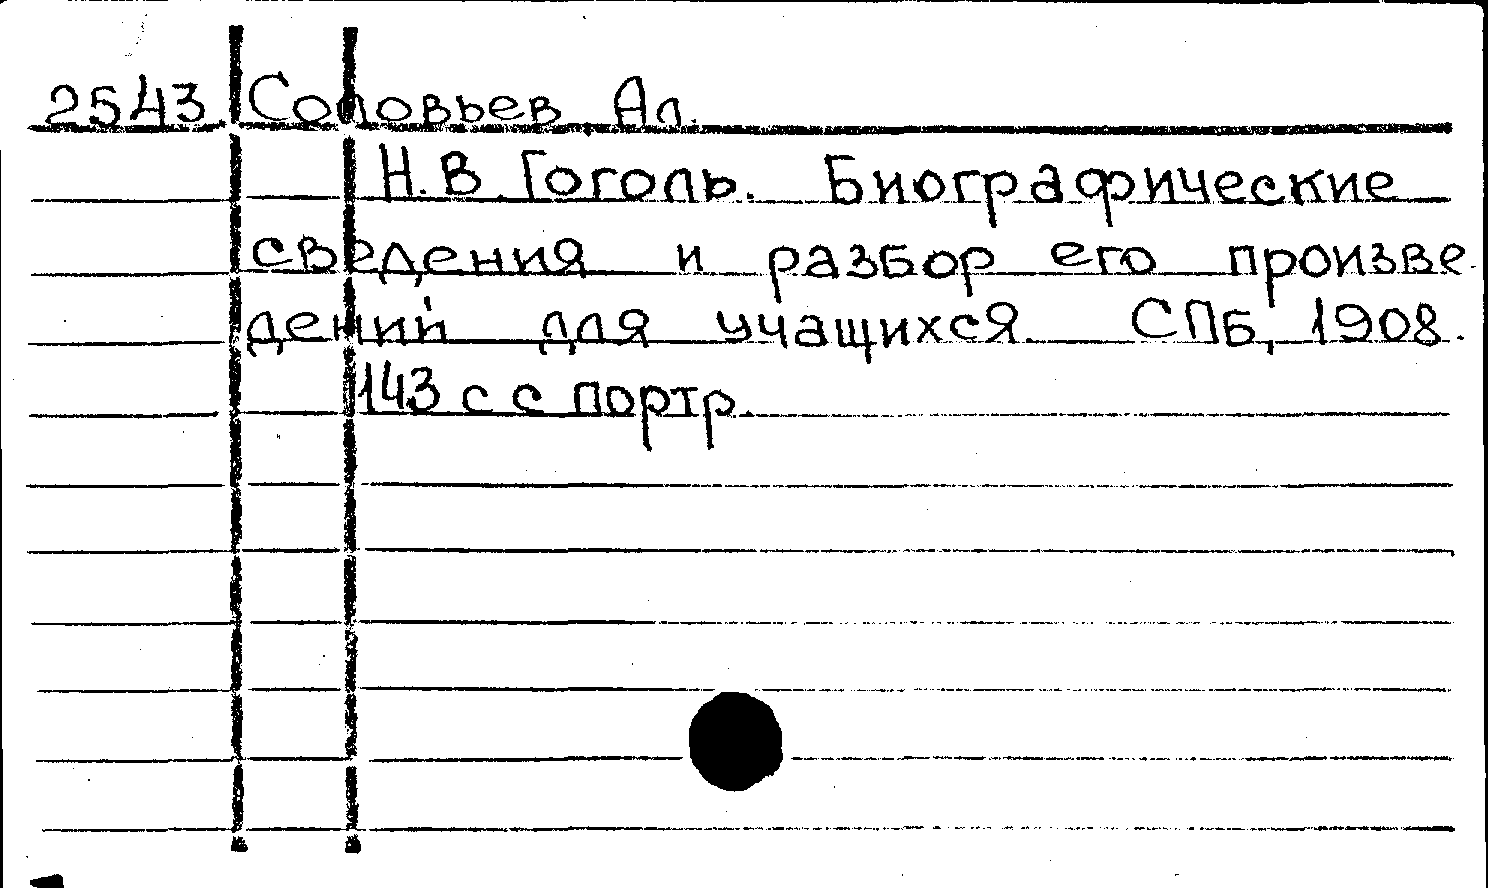 2543. Соловьев Ал.
Н.В. Гоголь. Биографические
сведения и разбор его произве-
дений для учащихся. СПБ, 1908.
143 с с портр.